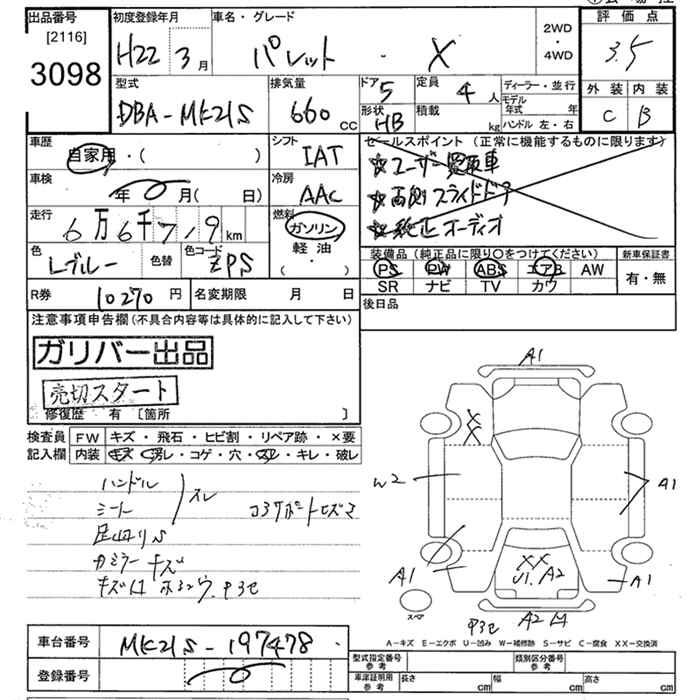 出品番号
[2116]
3098
初度登録年月
H22 3月
車名・グレード
パレット ・ X
2WD
・
4WD
評価点
3.5
外装 内装
C B
型式
DBA-MK21S
排気量
660 CC
ドア 5
形状 HB
定員 4 人
積載 kg
ディーラー・並行
モデル年式 年
ハンドル 左・右
車歴
自家用・( )
シフト
IAT
セールスポイント(正常に機能するものに限ります)
☆ユーザー買取車
☆両側スライドドア
☆純正オーディオ
車検
年 月( 日)
冷房
AAC
走行
6万6千719km
燃料
ガソリン
軽油・
( )
色
Lブルー
色替
色コード
ZPS
装備品(純正品に限り〇をつけてください)
PS PW ABS エアB AW
SR ナビ TV カワ
新車保証書
有・無
R券 10270円
名変期限 月 日
後日品
注意事項申告欄(不具合内容等は具体的に記入して下さい)
ガリバー出品
売切スタート
修復歴 有〔箇所 〕
検査員記入欄
FW キズ・飛石・ヒビ割・リペア跡・×要
内装 キズ・汚レ・コゲ・穴・スレ・キレ・破レ
ハンドル
シート
スレ
カミラーキズ
A1
X
X
W2
A1
A1
A1
XX
U1.A2
スペア
A-キズ E-エクボ U-凹み W-補修跡 S-サビ C-腐食 XX-交換済
車台番号 MK21S-197478
登録番号
型式指定番号
参考
類別区分番号
参考
車庫証明用
参考
長さ cm 幅 cm 高さ cm